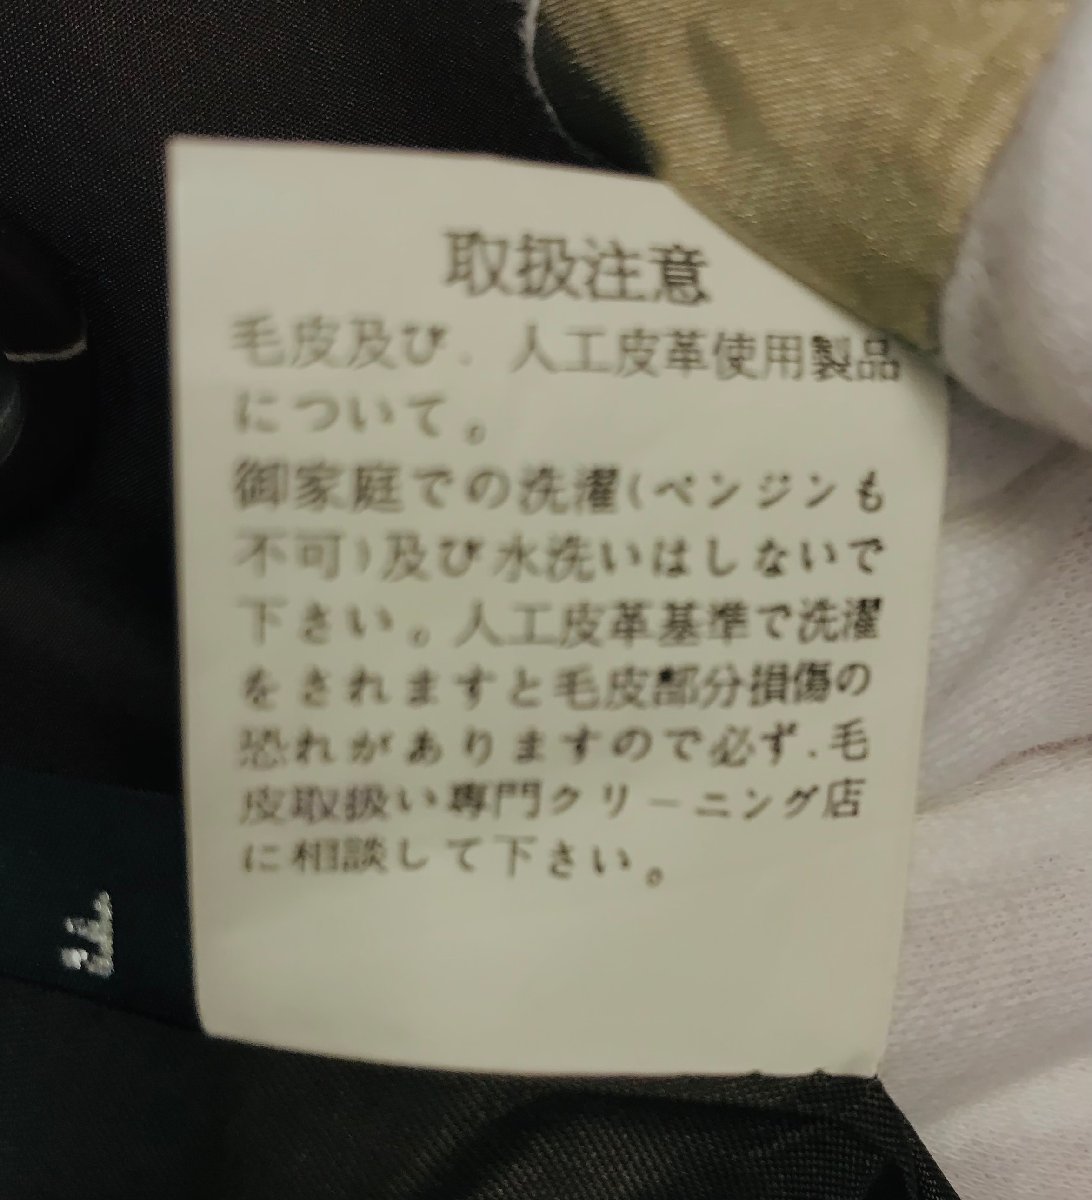 取扱注意
毛皮及び、人工皮革使用製品
について。
御家庭での洗濯(ベンジンも
不可)及び水洗いはしないで
下さい。人工皮革基準で洗濯
をされますと毛皮部分損傷の
恐れがありますので必ず、毛
皮取扱い専門クリーニング店
に相談して下さい。